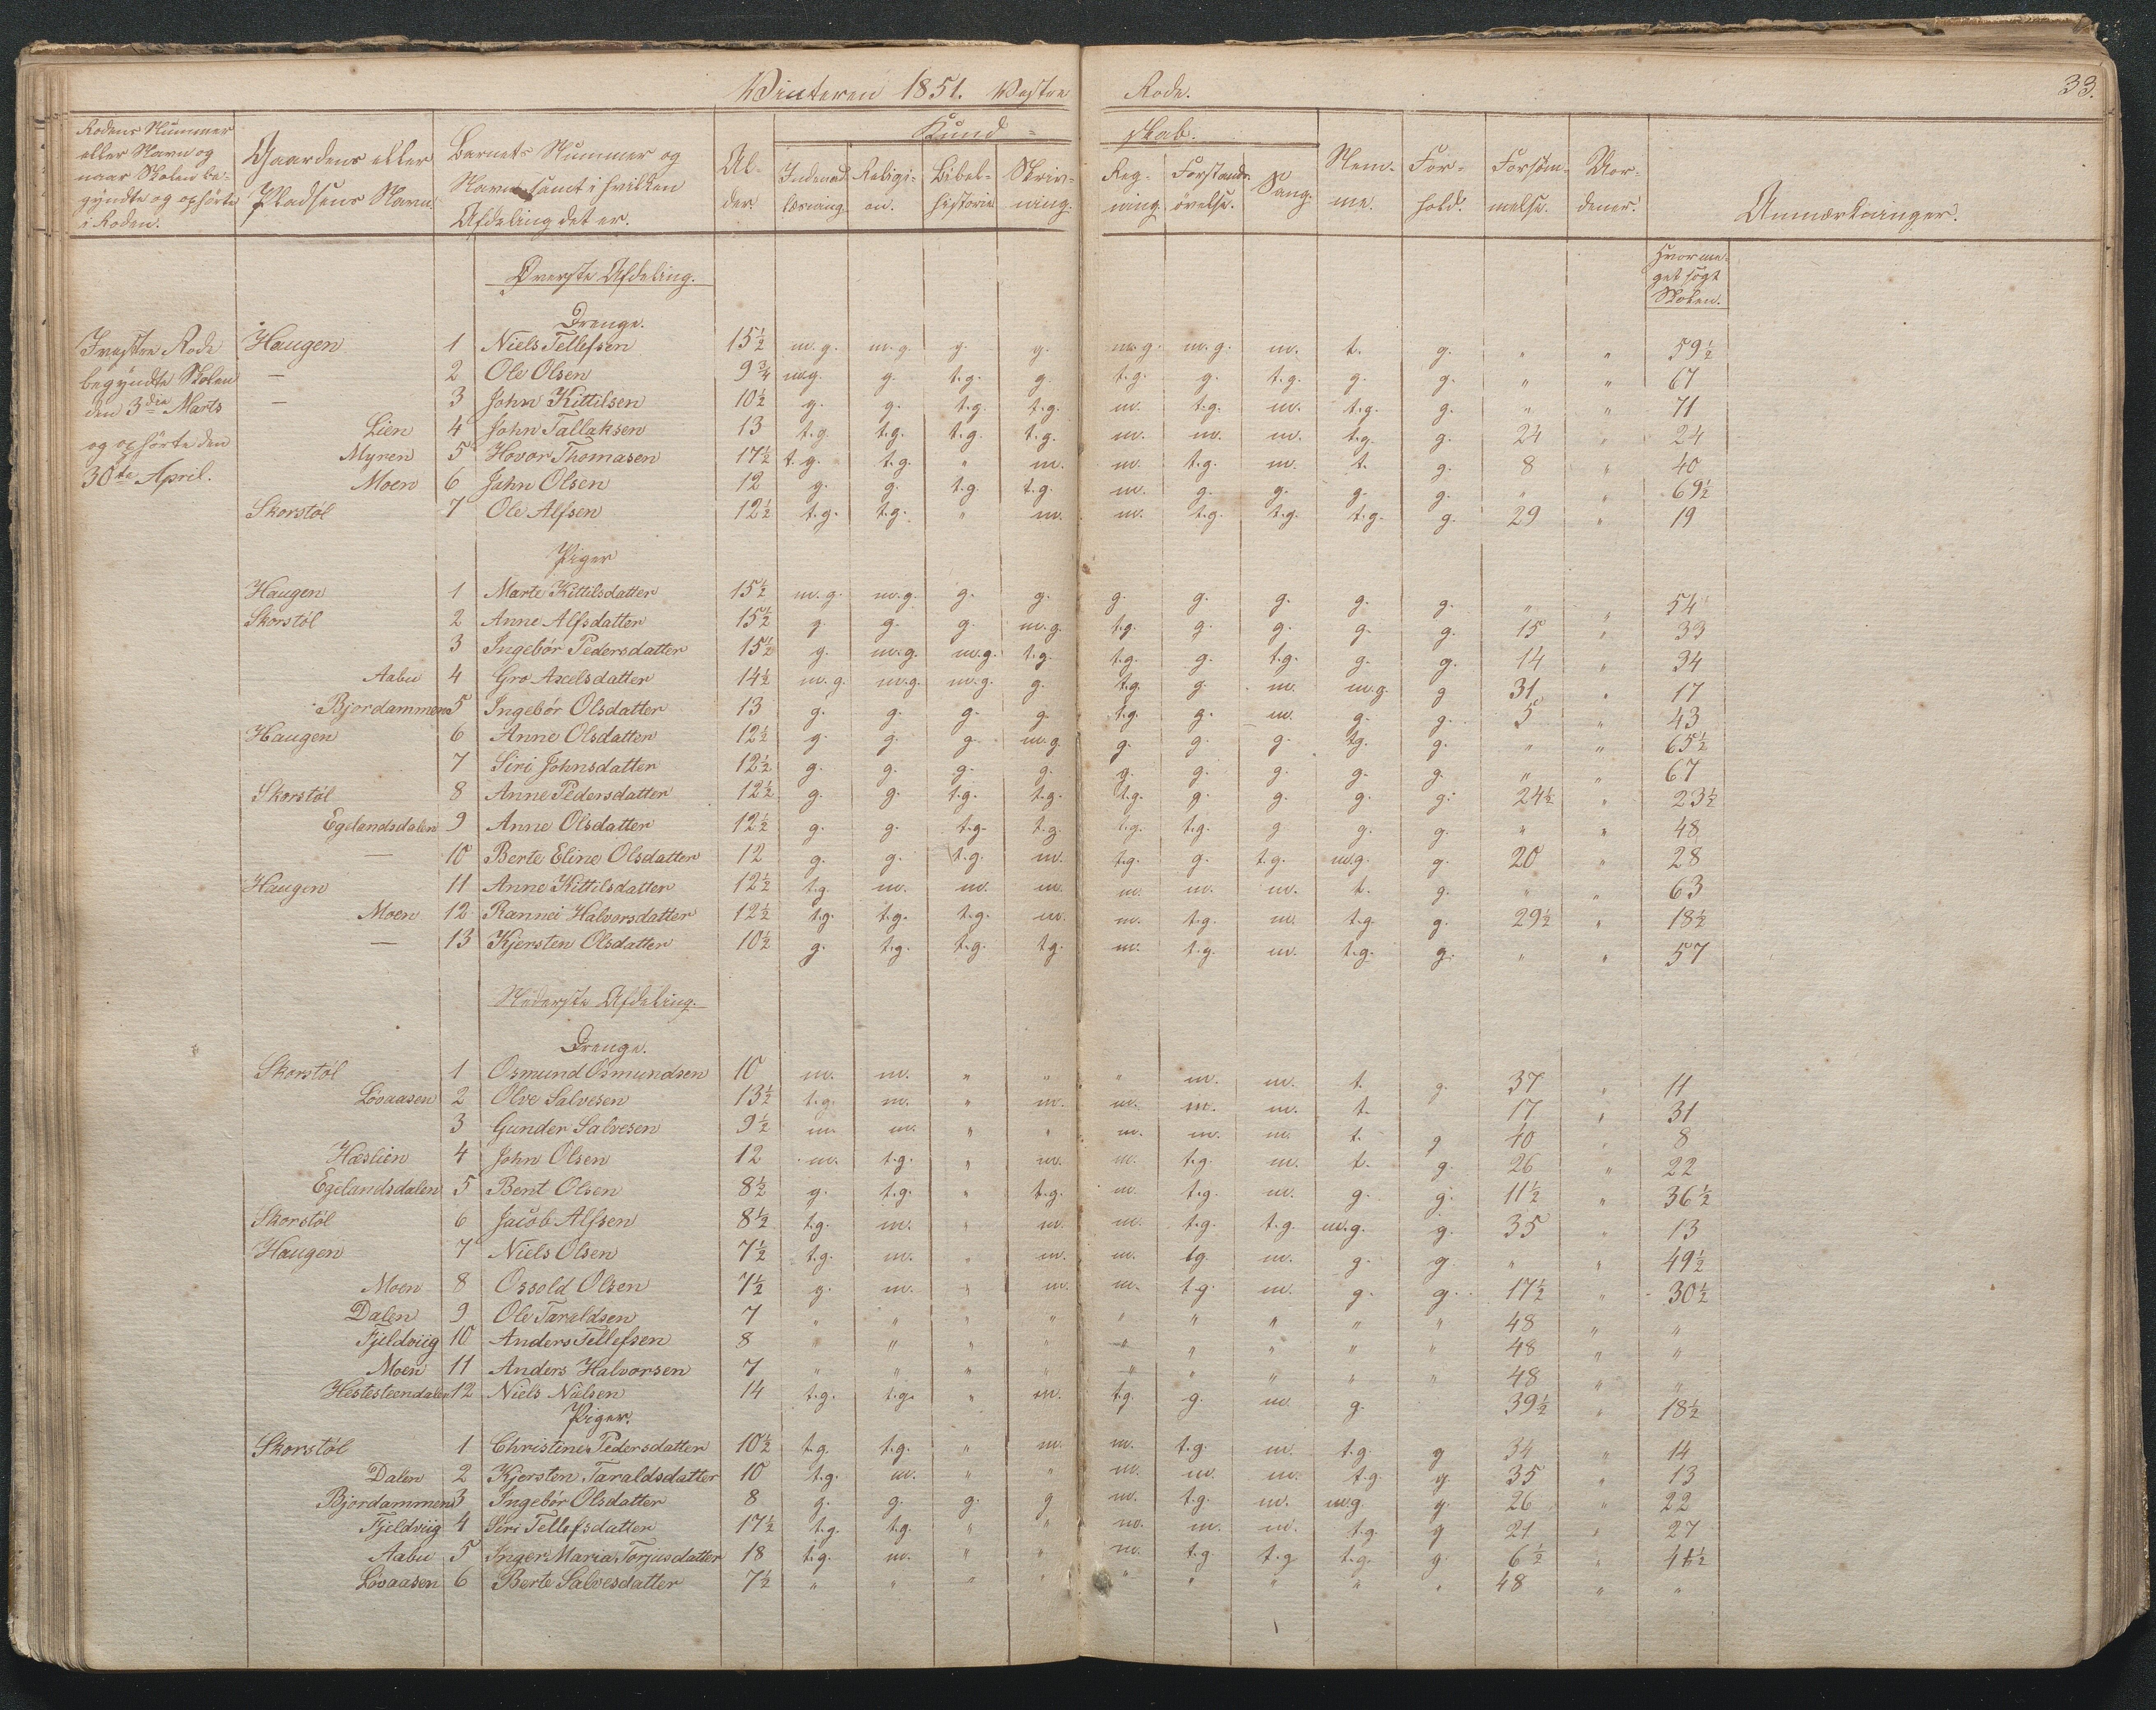 Winteren 1851. Vestre Rode. 33.
Rodens Nummer eller Navn og naar Skolen begyndte og ophørte i Roden. | Gaardens eller Pladsens Navn. | Barnets Nummer og Navn samt i hvilken Afdeling det er. | Alder. | Kundskab. | Indenadlæsning | Religion. | Bibelhistorie | Skrivning. | Regning | Forstandsøvelse. | Sang. | Nemme. | Forhold. | Forsømmelse. | Anmærkninger.
Hvormeget søgt Skolen.
Øverste Afdeling.
Drenge.
I vestre Rode begyndte Skolen den 3die Marts og ophørte den 30te April.
Haugen 1 Niels Tellefsen 15½ m.g. m.g. g. g. m.g. m.g. m. t. g. " " 59½
— 2 Ole Olsen 9¾ m.g. g. t.g. g. t.g. g. t.g. g. g. " " 67
— 3 John Kittilsen 10½ g. g. t.g. t.g. m. t.g. m. t.g. g. " " 71
Lien 4 John Tallaksen 13 t.g. t.g. t.g. t.g. m. m. m. t.g. g. 24 " 24
Myren 5 Hovor Thomasen 17½ t.g. t.g. " m. m. t.g. m. t. g. 8 " 40
Moen 6 John Olsen 12 g. g. t.g. t.g. m. g. g. g. g. " " 69½
Skorstøl 7 Ole Alfsen 12½ t.g. t.g. " m. m. t.g. t.g. t.g. g. 29 " 19
Piger
Haugen 1 Marte Kittilsdatter 15½ m.g. m.g. g. g. g. g. g. g. g. " " 54
Skorstøl 2 Anne Alfsdatter 15½ g. g. g. m.g. t.g. g. g. g. g. 15 " 33
3 Ingebør Pedersdatter 15½ g. m.g. m.g. t.g. t.g. g. t.g. g. g. 14 " 34
Aabu 4 Gro Axelsdatter 14½ m.g. m.g. m.g. g. t.g. g. m. m.g. g 31 " 17
Bjordammen 5 Ingebør Olsdatter 13 g. g. g. g. t.g. g. m. g. g. 5 " 43
Haugen 6 Anne Olsdatter 12½ g. g. g. m.g. g. g. g. tg. g. " " 65½
7 Siri Johnsdatter 12½ g. g. g. g. g. g. g. g. g. " " 67
Skorstøl 8 Anne Pedersdatter 12½ g. g. t.g. t.g. t.g. g. g. g. g. 24½ " 23½
Egelandsdalen 9 Anne Olsdatter 12½ g. g. t.g. t.g. t.g. t.g. g g. g. " " 48
— 10 Berte Eline Olsdatter 12 g. g. t.g. m. t.g. g. t.g. m.g. g. 20 " 28
Haugen 11 Anne Kittilsdatter 12½ t.g. m. m. m. m. m. m. t. g. " " 63
Moen 12 Rannei Halvorsdatter 12½ t.g. t.g. t.g. m. m. t.g. m. t.g. g. 29½ " 18½
— 13 Kjersten Olsdatter 10½ g. t.g. t.g. t.g. m. t.g. m. t.g. g. " " 57
Nederste Afdeling.
Drenge.
Skorstøl 1 Osmund Osmundsen 10 m. m. " " " m. m. t. g. 37 " 11
Løvaasen 2 Olve Salvesen 13½ t.g. m. " m. m. m. m. t. 17 " 31
3 Gunder Salvesen 9½ m. m. " " m. m. m. t. g 40 " 8
Hæslien 4 John Olsen 12 m. t.g. " m. m. t.g. m. t. g. 26 " 22
Egelandsdalen 5 Bent Olsen 8½ g. t.g. " t.g. m. t.g. m. g. g. 11½ " 36½
Skorstøl 6 Jacob Alfsen 8½ t.g. m. " m. m. t.g. t.g. m.g. g. 35 " 13
Haugen 7 Niels Olsen 7½ t.g. m. " m. m. tg. m. g. g. " " 49½
Moen 8 Ossold Olsen 7½ g. m. " m. m. t.g. m. g. g. 17½ " 30½
Dalen 9 Ole Taraldsen 7 " " " " " " " " " 48 " "
Fjeldviig 10 Anders Tellefsen 8 " " " " " " " " " 48 " "
Moen 11 Anders Halvorsen 7 " " " " " " " " " 48 " "
Hestesteendalen 12 Niels Nielsen 14 t.g. t.g. " m. t.g. g. m. g. 39½ " 18½
Piger.
Skorstøl 1 Christine Pedersdatter 10½ t.g. t.g. " m. m. t.g. m. t.g. g 34 " 14
Dalen 2 Kjersten Taraldsdatter 10 t.g. m. " " m. m. m. t.g. g. 35 " 13
Bjordammen 3 Ingebør Olsdatter 8 g. g. g. g m. t.g. m. m.g. g. 26 " 22
Fjeldviig 4 Siri Tellefsdatter 17½ t.g. t.g. " " m. m. m. t.g. g 21 " 27
Aabu 5 Inger Maria Torjusdatter 18 t.g. m. " " m. t.g. t.g t.g. g. 6½ " 41½
Løvaasen 6 Berte Salvesdatter 7½ " " " " " " " " " 48 " "